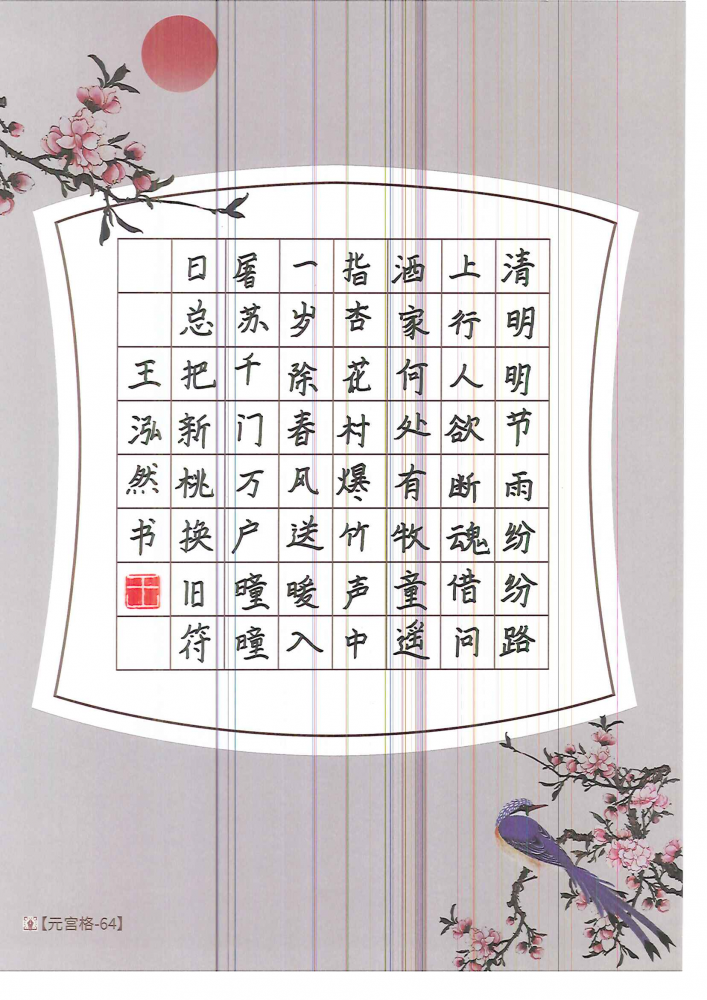 清明明节雨纷纷路
上行人欲断魂借问
酒家何处有牧童遥
指杏花村爆竹声中
一岁除春风送暖入
屠苏千门万户曈曈
日总把新桃换旧符
王泓然书
【元宫格-64】